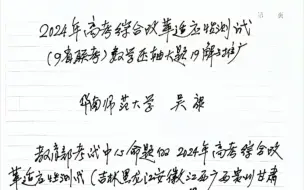 2024年高考综合改革适应性测试
(9省联考)数学压轴大题19解与推广
华南师范大学 吴康
教育部考试中心命题的2024年高考综合改
革适应性测试(吉林黑龙江安徽江西广西贵州甘肃